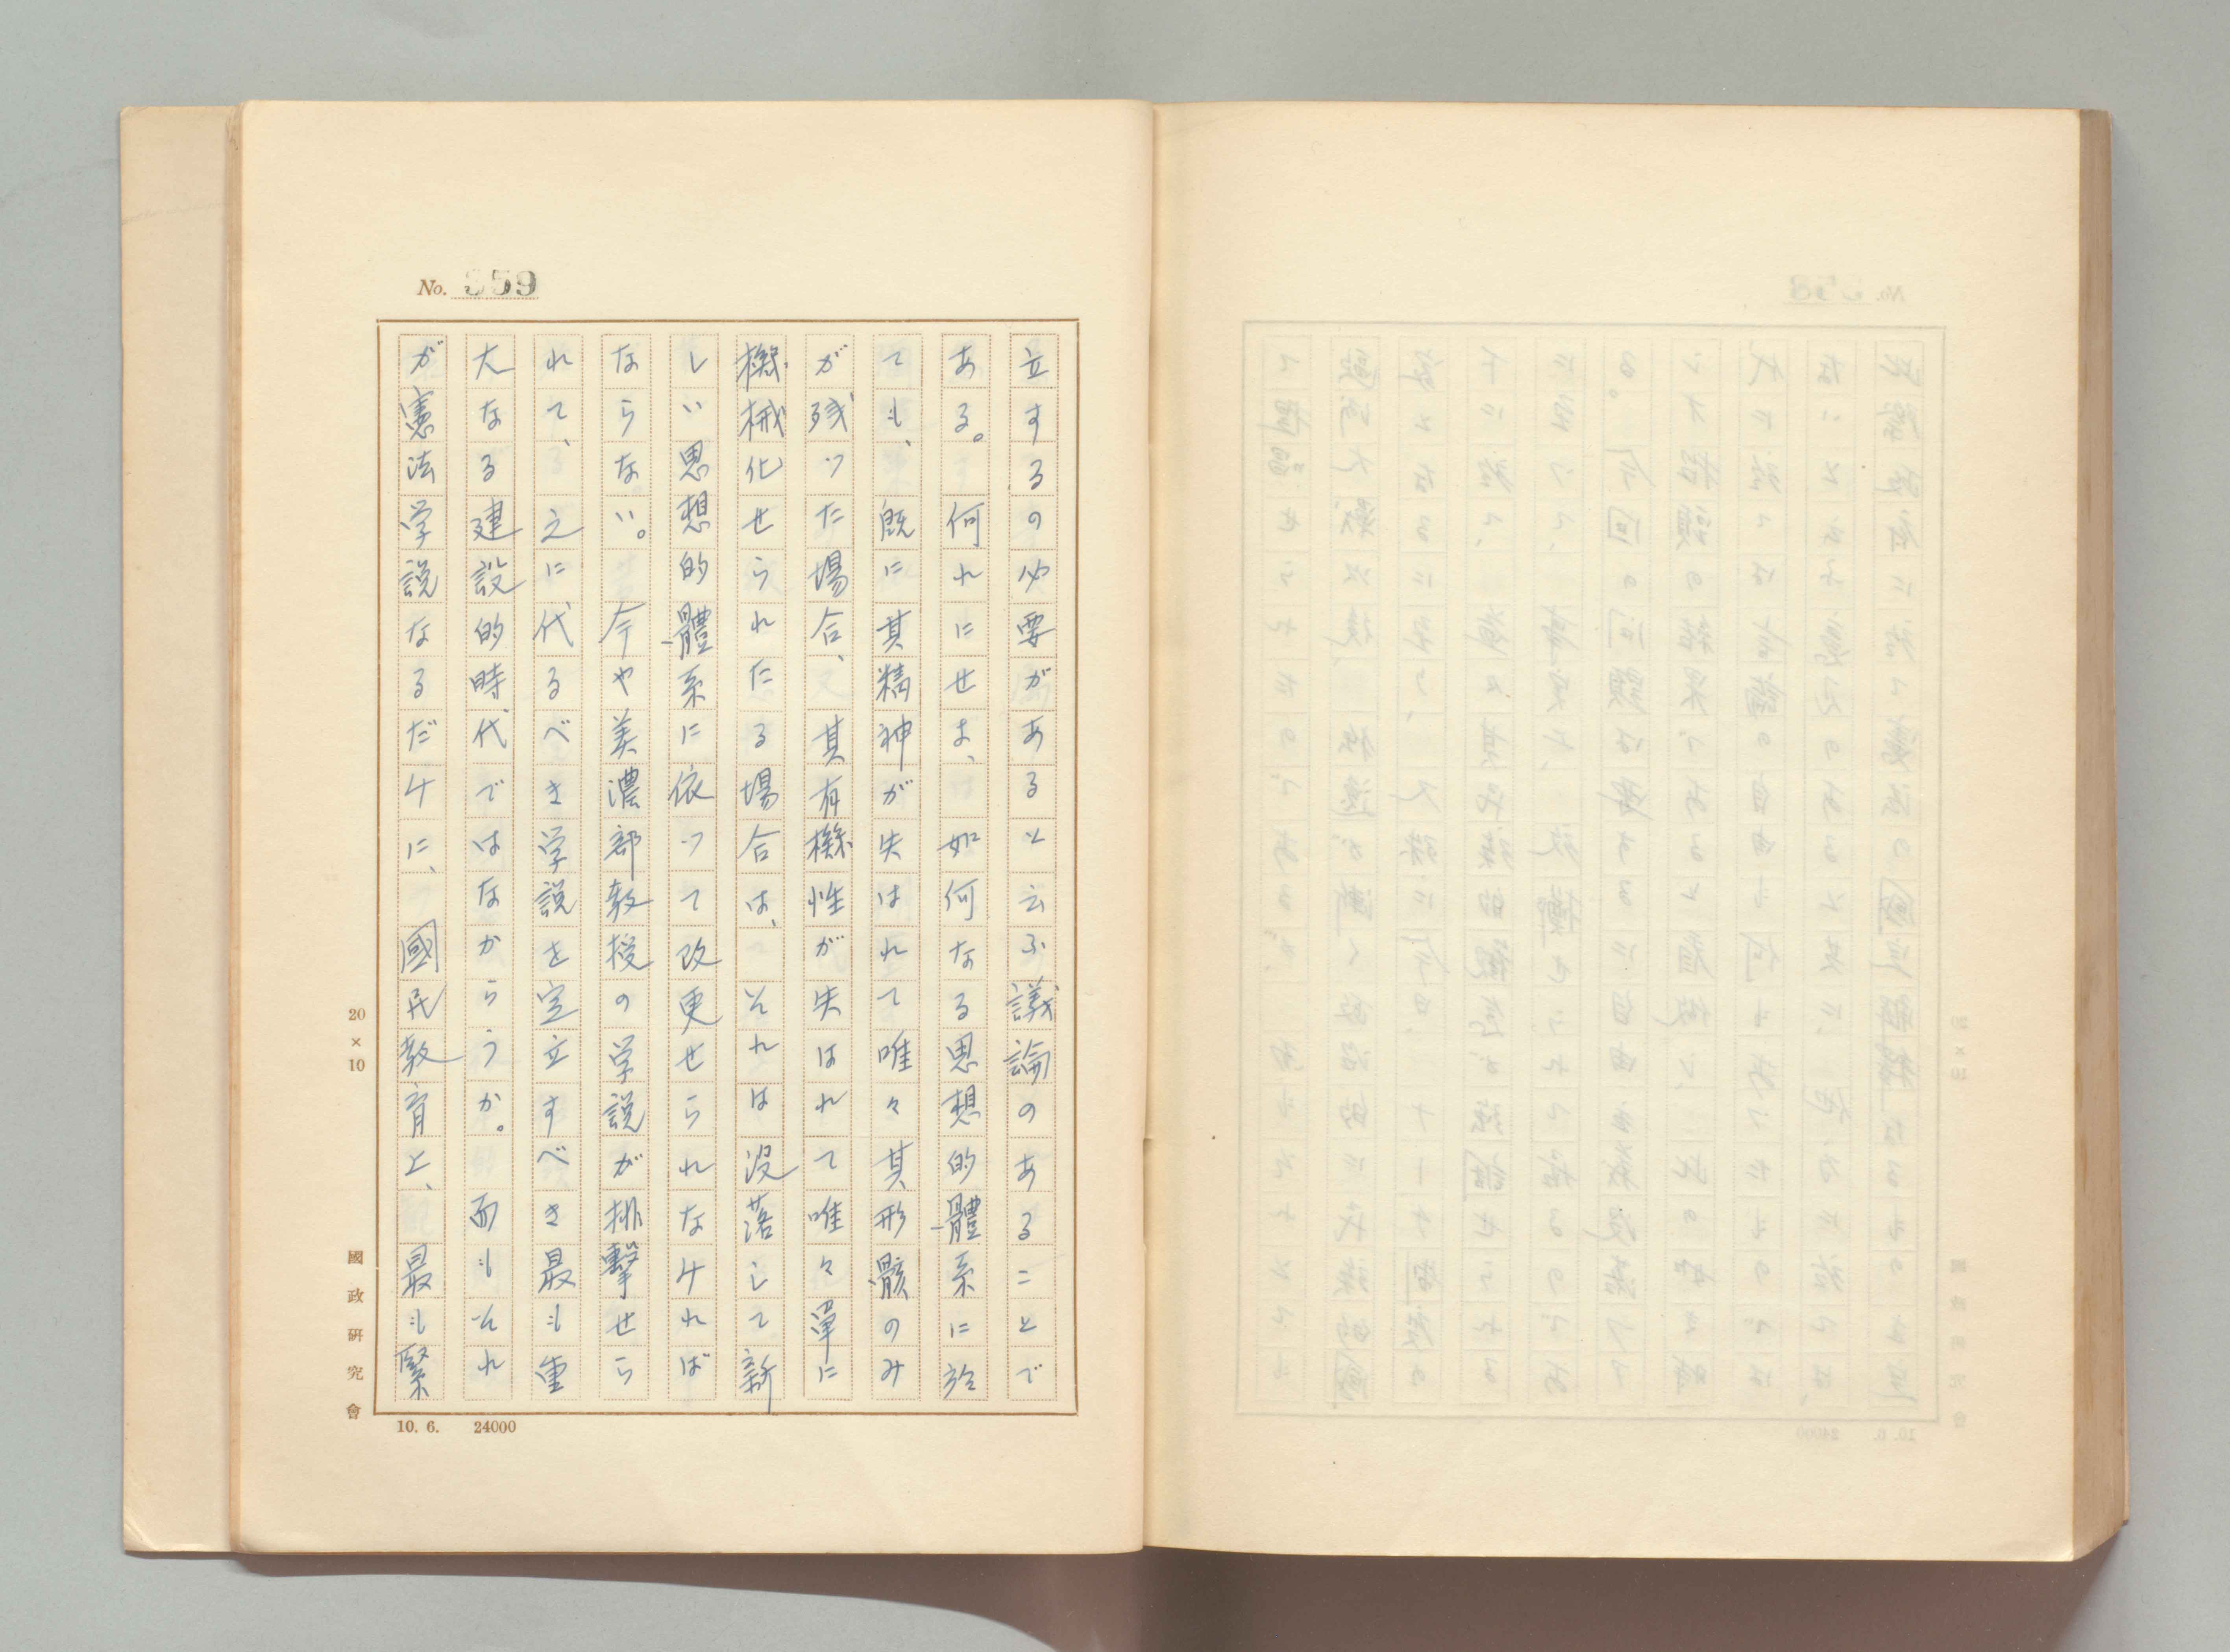 No. 359
立するの必要があると云ふ議論のあることで
ある。何れにせよ、如何なる思想的體系に於
ても、既に其精神が失はれて唯々其形骸のみ
が残ツた場合、其有機性が失はれて唯々単に
機械化せられたる場合は、それは没落して新
しい思想的體系に依ツて改更せられなければ
ならない。今や美濃部教授の学説が排撃せら
れて、之に代るべき学説を定立すべき最も重
大なる建設的時代ではなからうか。而もそれ
が憲法学説なるだけに、國民教育上、最も緊
20×10
國政研究會
10. 6. 24000